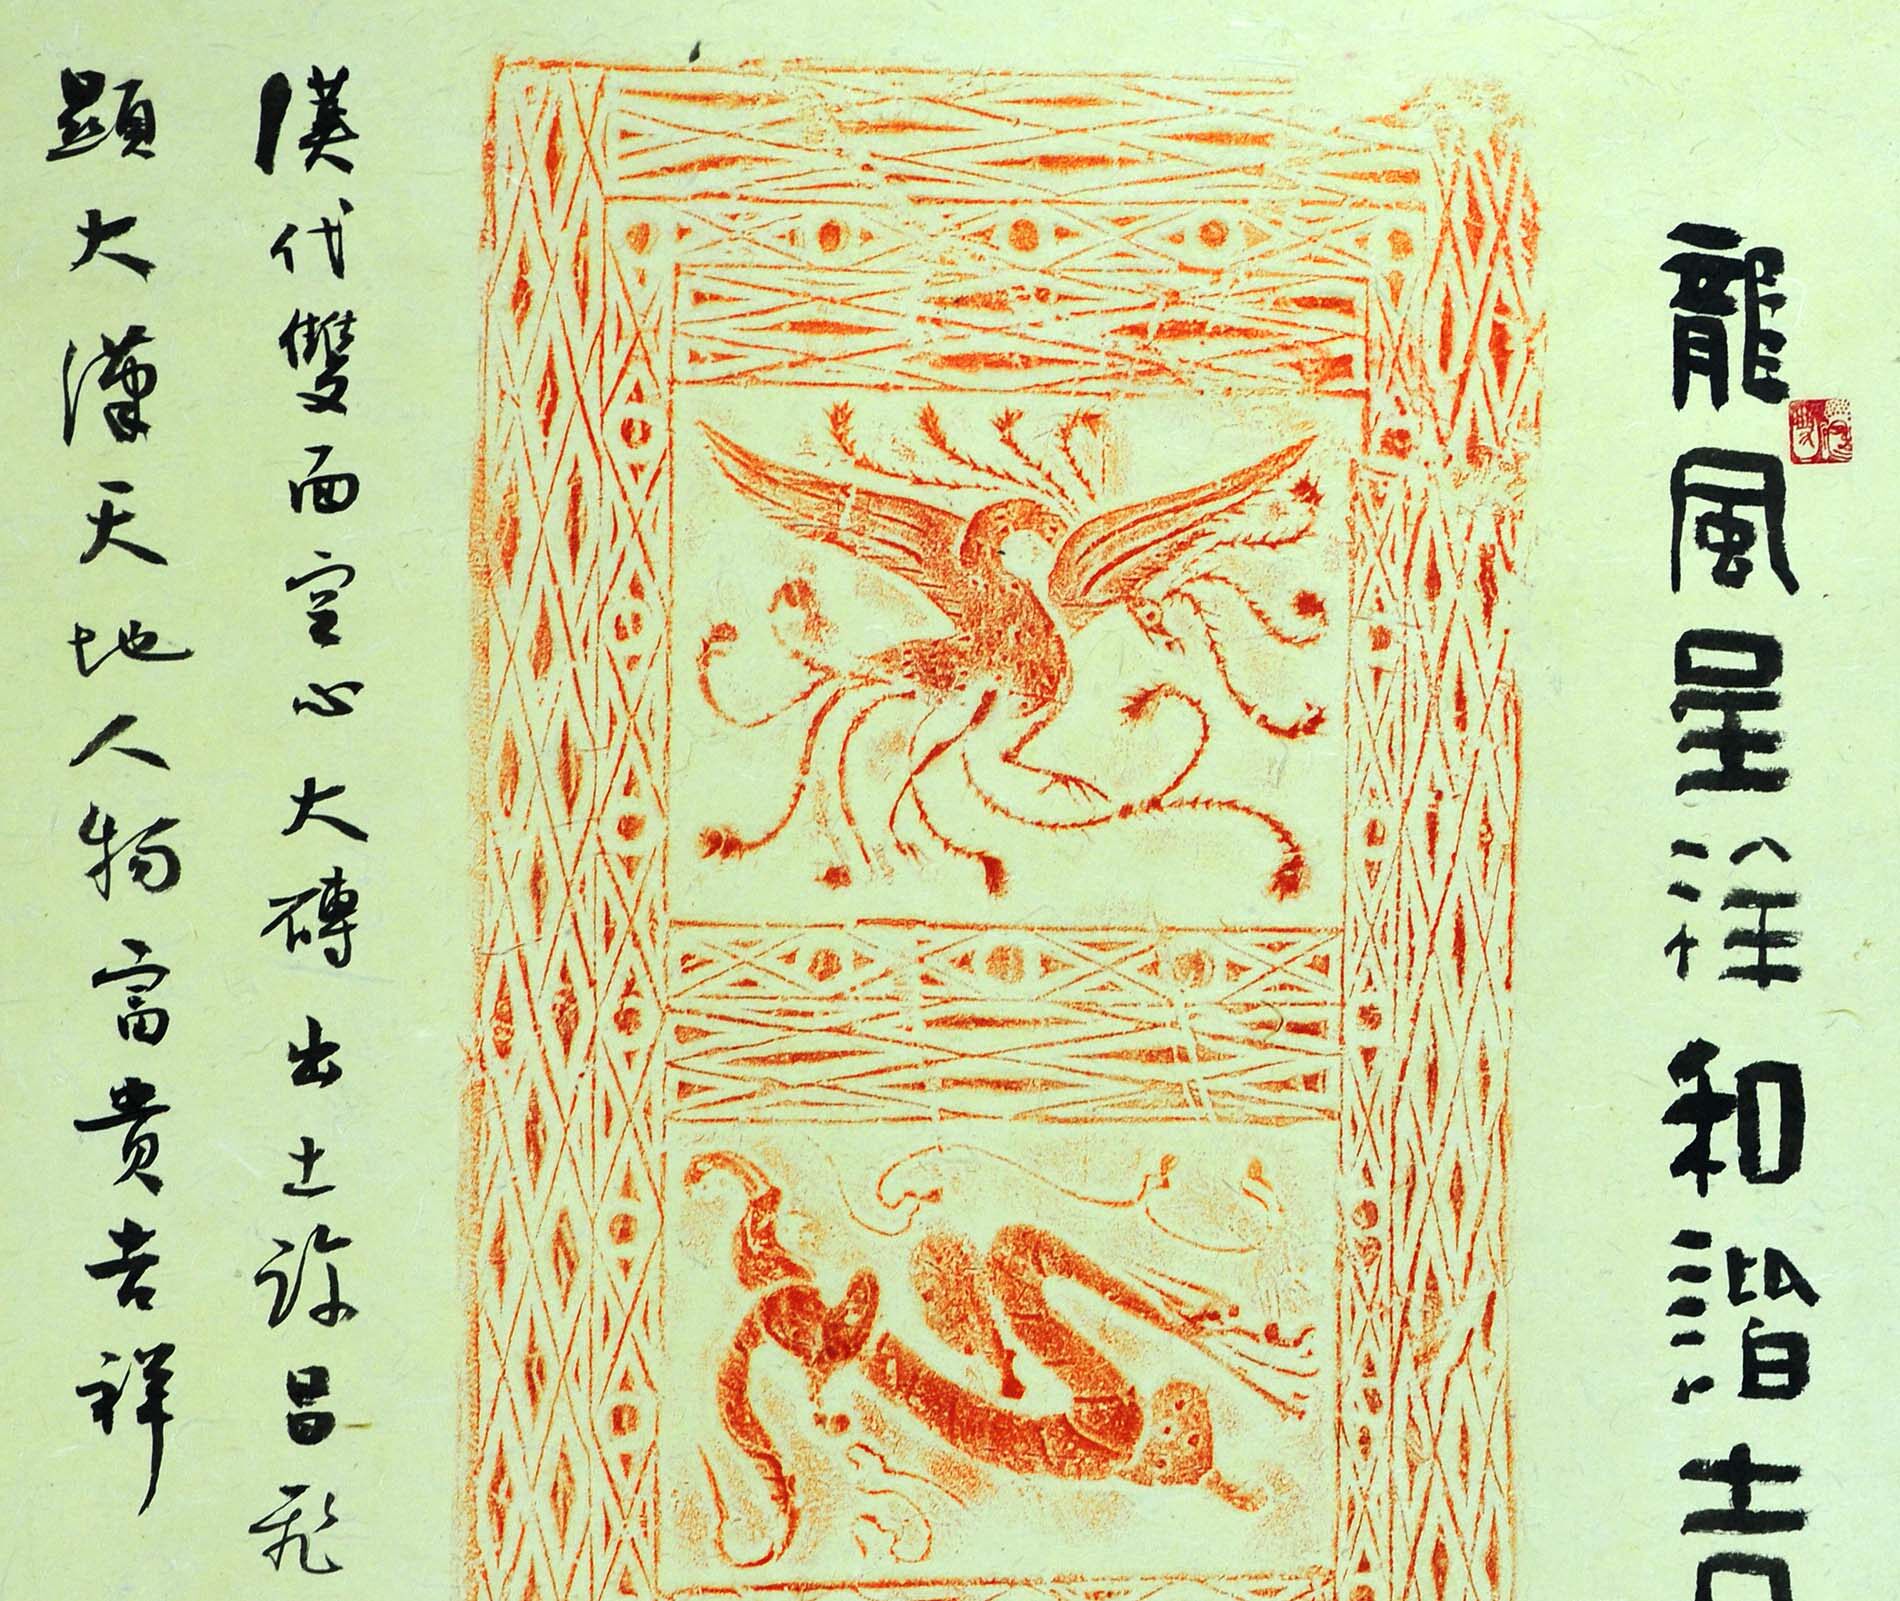 龍風呈祥和諧吉
漢代雙面空心大磚出土許昌
顕大漢天地人物富貴吉祥